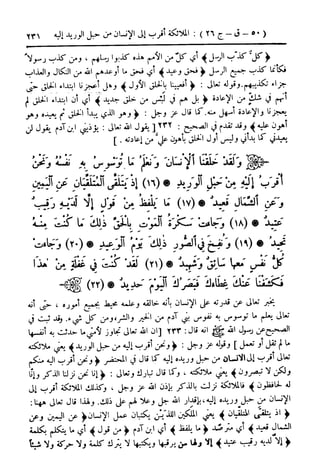 (٥٠ – ق – ج ٢٦) : الملائكة أقرب إلى الإنسان من حبل الوريد إليه ٢٣١
﴿ كلٌّ كذّب الرسل ﴾ أي كل من الأمم هذه كذبوا رسلهم ، ومن كذب رسولاً
فكأنما كذب جميع الرسل ﴿ فحق وعيد ﴾ أي فحق ما أوعدهم الله من النكال والعذاب
جزاء تكذيبهم. وقوله تعالى : ﴿ أفعيينا بالخلق الأول ﴾ وهل أعجزنا ابتداء الخلق حتى
أنهم في شك من الإعادة ﴿ بل هم في لبس من خلق جديد ﴾ أي أن ابتداء الخلق لم
يعجزنا والإعادة أسهل منه. كما قال عز وجل : ﴿ وهو الذي يبدأ الخلق ثم يعيده وهو
أهون عليه ﴾ وقد تقدم في الصحيح : ٢٣٢ [ يقول الله تعالى : يؤذيني ابن آدم يقول لن
يعيدني كما بدأني وليس أول الخلق بأهون علي من إعادته . ]
وَلَقَدْ خَلَقْنَا ٱلْإِنسَٰنَ وَنَعْلَمُ مَا تُوَسْوِسُ بِهِۦ نَفْسُهُۥ وَنَحْنُ
أَقْرَبُ إِلَيْهِ مِنْ حَبْلِ ٱلْوَرِيدِ * (١٦) إِذْ يَتَلَقَّى ٱلْمُتَلَقِّيَانِ عَنِ ٱلْيَمِينِ
وَعَنِ ٱلشِّمَالِ قَعِيدٌ * (١٧) مَا يَلْفِظُ مِن قَوْلٍ إِلَّا لَدَيْهِ رَقِيبٌ
عَتِيدٌ * (١٨) وَجَآءَتْ سَكْرَةُ ٱلْمَوْتِ بِٱلْحَقِّ ذَٰلِكَ مَا كُنتَ مِنْهُ
تَحِيدُ * (١٩) وَنُفِخَ فِي ٱلصُّورِ ذَٰلِكَ يَوْمُ ٱلْوَعِيدِ * (٢٠) وَجَآءَتْ
كُلُّ نَفْسٍ مَّعَهَا سَآئِقٌ وَشَهِيدٌ * (٢١) لَّقَدْ كُنتَ فِي غَفْلَةٍ مِّنْ هَٰذَا
فَكَشَفْنَا عَنكَ غِطَآءَكَ فَبَصَرُكَ ٱلْيَوْمَ حَدِيدٌ * (٢٢)
يخبر تعالى عن قدرته على الإنسان بأنه خالقه وعلمه محيط بجميع أموره ، حتى أنه
تعالى يعلم ما توسوس به نفوس بني آدم من الخير والشر ومن كل شيء. وقد ثبت في
الصحيح عن رسول الله ﷺ أنه قال : ٢٣٣ [ إن الله تعالى تجاوز لأمتي ما حدثت به أنفسها
ما لم تقل أو تعمل ] وقوله عز وجل : ﴿ ونحن أقرب إليه من حبل الوريد ﴾ يعني ملائكته
تعالى أقرب إلى الإنسان من حبل وريده إليه كما قال في المحتضر ﴿ ونحن أقرب إليه منكم
ولكن لا تبصرون ﴾ يعني ملائكته ، وكما قال تبارك وتعالى : ﴿ إنا نحن نزلنا الذكر وإنا
له لحافظون ﴾ فالملائكة نزلت بالذكر بإذن الله عز وجل ، وكذلك الملائكة أقرب إلى
الإنسان من حبل وريده إليه، بإقدار الله جل وعلا لهم على ذلك. ولهذا قال تعالى ههنا :
﴿ إذ يتلقى المتلقيان ﴾ يعني الملكين اللذين يكتبان عمل الإنسان ﴿ عن اليمين وعن
الشمال قعيد ﴾ أي مترصد ﴿ ما يلفظ ﴾ أي ابن آدم ﴿ من قول ﴾ أي ما يتكلم بكلمة
﴿ إلا لديه رقيب عتيد ﴾ إلا ولها من يرقبها ويكتبها لا يترك كلمة ولا حركة ولا شيئاً